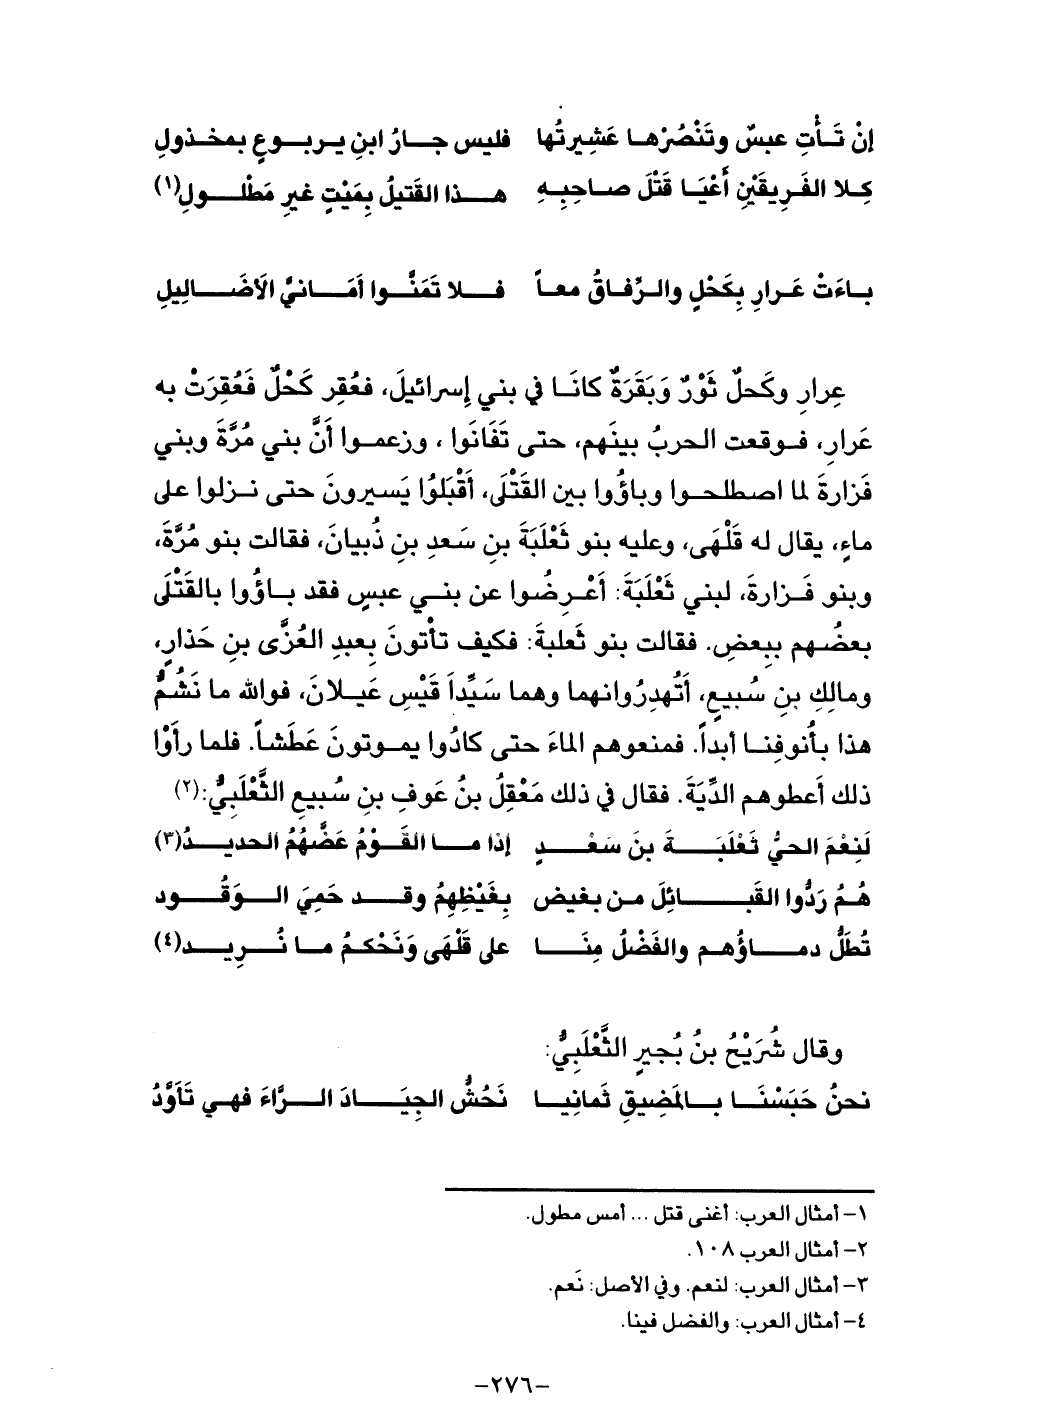 إنْ تَـأْتِ عبسٌ وتَنْصُرْهـا عَشِيرتُها فليس جـارُ ابنِ يـربـوعٍ بمخـذولِ
كِلا الفَرِيقَيْنِ أَعْيَا قَتْلَ صاحِبِهِ هـذا القَتيلُ بِمَيْتٍ غيرِ مَطْلـولِ(١)
بـاءَتْ عَـرارِ بِكَحْلٍ والـرِّفـاقُ معـاً فـلا تَمَنَّـوا أمَـانيَّ الأضَـالِيلِ
عِرارِ وكَحلٌ ثَوْرٌ وَبَقَرَةٌ كانَـا في بني إسرائيلَ، فعُقِر كَحْلٌ فَعُقِرَتْ به
عَرارِ، فـوقعت الحربُ بينَهم، حتى تَفَانَوا ، وزعمـوا أنَّ بني مُرَّةَ وبني
فَزارةَ لما اصطلحـوا وباؤُوا بين القَتْلَى، أقْبَلُوا يَسيرونَ حتى نـزلوا على
ماءٍ، يقال له قَلْهَى، وعليه بنو ثَعْلَبَةَ بنِ سَعدِ بنِ ذُبيانَ، فقالت بنو مُرَّةَ،
وبنو فَـزارةَ، لبني ثَعْلَبَةَ: أعْـرِضُوا عن بنـي عبسٍ فقد بـاؤُوا بالقَتْلَى
بعضُهم ببعضٍ. فقالت بنو ثَعلبةَ: فكيف تأتونَ بِعبدِ العُزَّى بنِ حَذارٍ،
ومالِكِ بنِ سُبيعٍ، أتُهدِرُوانهما وهما سَيِّداَ قَيْسِ عَيـلانَ، فوالله ما نَشُمُّ
هذا بأنوفِنـا أبداً. فمنعوهم الماءَ حتى كادُوا يمـوتونَ عَطَشاً. فلما رأَوْا
ذلك أعطوهم الدِّيَةَ. فقال في ذلك مَعْقِلُ بنُ عَوفِ بنِ سُبيعٍ الثَّعْلَبِيُّ:(٢)
لَنِعْمَ الحيُّ ثَعْلَبَـةَ بنَ سَعْـدٍ إذا مـا القَـوْمُ عَضَّهُمُ الحديـدُ(٣)
هُمُ رَدُّوا القَبـائِلَ مـن بغيض بِغَيْظِهِمُ وقـد حَمِيَ الـوَقُـود
تُطَلُّ دمـاؤُهـم والفَضْلُ مِنَـا على قَلْهَى وَنَحْكمُ مـا نُـرِيـد(٤)
وقال شُرَيْحُ بنُ بُجيرٍ الثَّعْلَبِيُّ:
نحنُ حَبَسْنَـا بـالمَضِيقِ ثَمانِيـا نَحُشُّ الجِيَـادَ الـرَّاءَ فهي تَأوَّدُ
١- أمثال العرب: أغنى قتل ... أمس مطول.
٢- أمثال العرب ١٠٨.
٣- أمثال العرب: لنعم. وفي الأصل: نَعم.
٤- أمثال العرب: والفضل فينا.
-٢٧٦-